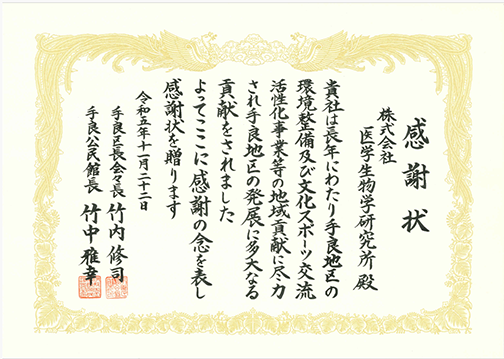 感謝状
株式会社
医学生物学研究所 殿
貴社は長年にわたり手良地区の
環境整備及び文化スポーツ交流
活性化事業等の地域貢献に尽力
され手良地区の発展に多大なる
貢献をされました
よってここに感謝の念を表し
感謝状を贈ります
令和五年十一月二十二日
手良区長会々長 竹内修司
手良公民館長 竹中雅幸